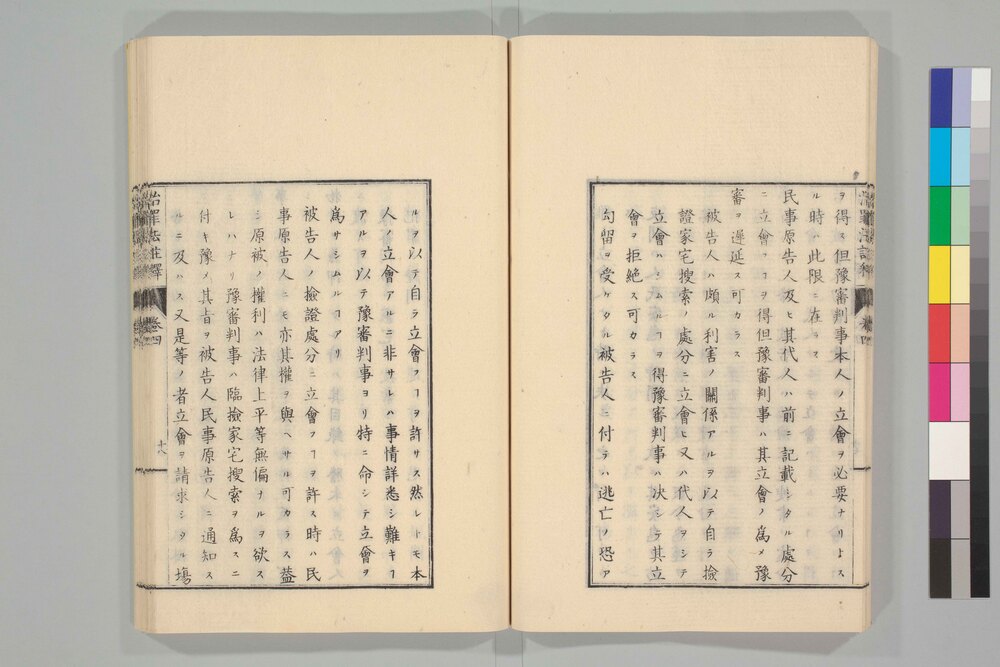 ヲ得ス但豫審判事本人ノ立會ヲ必要ナリトス
ル時ハ此限ニ在ラス
民事原告人及ヒ其代人ハ前ニ記載シタル處分
ニ立會フヿヲ得但豫審判事ハ其立會ノ爲メ豫
審ヲ遲延ス可カラス
被告人ハ頗ル利害ノ關係アルヲ以テ自ラ撿
證家宅搜索ノ處分ニ立會ヒ又ハ代人ヲシテ
立會ハシムルヿヲ得豫審判事ハ决シテ其立
會ヲ拒絶ス可カラス
勾留ヲ受ケタル被告人ニ付テハ逃亡ノ恐ア
ルヲ以テ自ラ立會フヿヲ許サス然レトモ本
人ノ立會アルニ非サレハ事情詳悉シ難キヿ
アルヲ以テ豫審判事ヨリ特ニ命シテ立會ヲ
爲サシムルヿアリ
被告人ノ撿證處分ニ立會フヿヲ許ス時ハ民
事原告人ニモ亦其權ヲ與ヘサル可カラス葢
シ原被ノ權利ハ法律上平等無偏ナルヲ欲ス
レハナリ豫審判事ハ臨撿家宅搜索ヲ爲スニ
付キ豫メ其旨ヲ被告人民事原告人ニ通知ス
ルニ及ハス又是等ノ者立會ヲ請求シタル塲
治罪法註釋
卷四